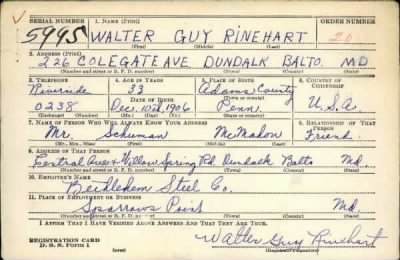 SERIAL NUMBER 1. NAME (Print) ORDER NUMBER
5995 WALTER GUY RINEHART 20
(First) (Middle) (Last)
2. ADDRESS (Print)
226 COLEGATE AVE DUNDALK BALTO. MD
(Number and street or R. F. D. number) (Town) (County) (State)
3. TELEPHONE 4. AGE IN YEARS 5. PLACE OF BIRTH 6. COUNTRY OF CITIZENSHIP
Riverside 33 Adams County
DATE OF BIRTH (Town or county)
0238 Dec. 10th, 1906 Penn. U.S.A.
(Exchange) (Number) (Mo.) (Day) (Yr.) (State or country)
7. NAME OF PERSON WHO WILL ALWAYS KNOW YOUR ADDRESS 8. RELATIONSHIP OF THAT PERSON
Mr. Schuman McMahon Friend.
(Mr., Mrs., Miss) (First) (Middle) (Last)
9. ADDRESS OF THAT PERSON
Central Ave & Willow Spring Rd. Dundalk Balto Md.
(Number and street or R. F. D. number) (Town) (County) (State)
10. EMPLOYER'S NAME
Bethlehem Steel Co.
11. PLACE OF EMPLOYMENT OR BUSINESS
Sparrows Point Md.
(Number and street or R. F. D. number) (Town) (County) (State)
I AFFIRM THAT I HAVE VERIFIED ABOVE ANSWERS AND THAT THEY ARE TRUE.
REGISTRATION CARD
D. S. S. Form 1 (over) Walter Guy Rinehart
(Registrant's signature)